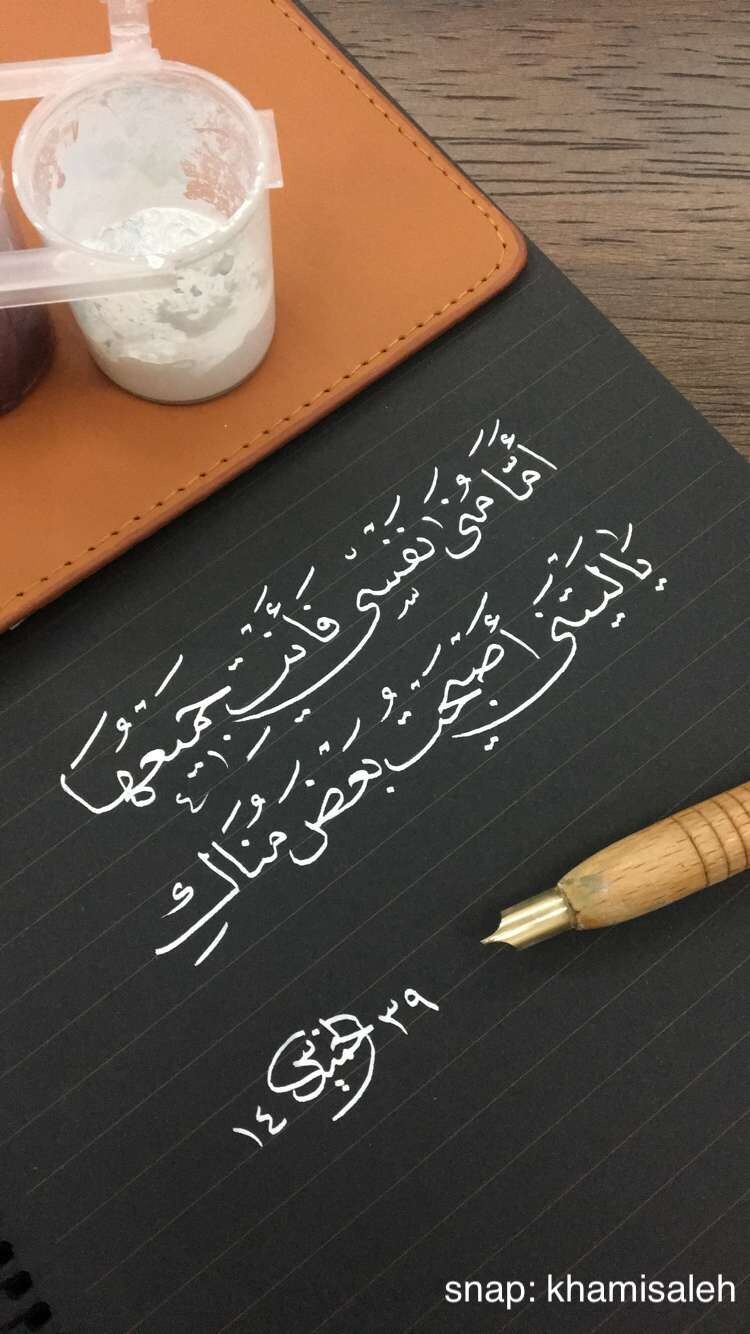 أَمَّا مُنَى نَفْسِي فَأَنْتَ جَمِيعُهَا
يَا لَيْتَنِي أَصْبَحْتُ بَعْضَ مُنَاكَ
١٤ ٣٩
snap: khamisaleh